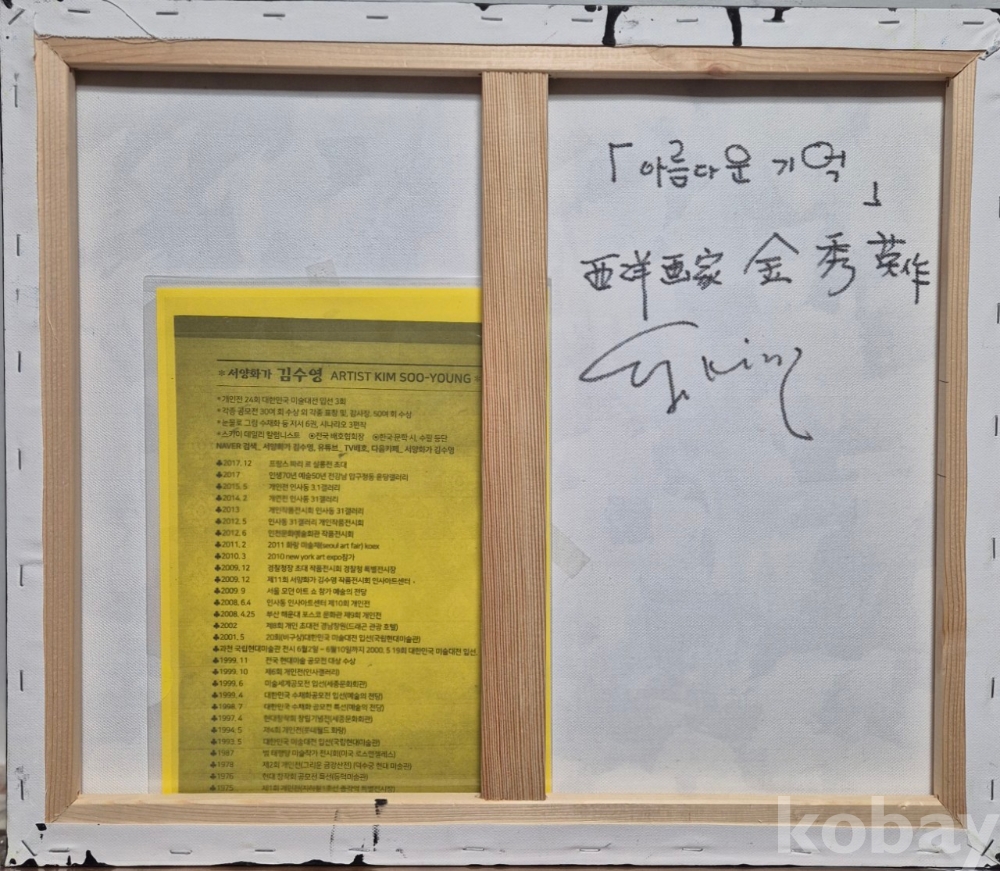 「아름다운 기억」
西洋画家 金秀英作
Kim
*서양화가 김수영 ARTIST KIM SOO-YOUNG *
*개인전 24회 대한민국 미술대전 입선 3회
*각종 공모전 30여 회 수상 외 각종 표창 및, 감사장, 50여 회 수상
*눈물로 그린 수채화 등 저서 6권, 시나리오 3편작
*스카이 데일리 칼럼니스트 ⊙전국 배호협회장 ⊙한국 문학 시, 수필 등단
NAVER 검색_ 서양화가 김수영, 유튜브_ TV배호, 다음카페_ 서양화가 김수영
♣2017. 12 프랑스 파리 르 살롱전 초대
♣2017 인생70년 예술50년 전 강남 압구정동 윤당갤러리
♣2015. 5 개인전 인사동 3.1갤러리
♣2014. 2 개인전 인사동 31갤러리
♣2013 개인작품전시회 인사동 31갤러리
♣2012. 5 인사동 31갤러리 개인작품전시회
♣2012. 6 인천문화예술회관 작품전시회
♣2011. 2 2011 화랑 미술제(seoul art fair) koex
♣2010. 3 2010 new york art expo참가
♣2009. 12 경찰청장 초대 작품전시회 경찰청 특별전시장
♣2009. 12 제11회 서양화가 김수영 작품전시회 인사아트센터
♣2009. 9 서울 모던 아트 쇼 참가 예술의 전당
♣2008. 6.4 인사동 인사아트센터 제10회 개인전
♣2008. 4.25 부산 해운대 포스코 문화관 제9회 개인전
♣2002 제8회 개인 초대전 경남창원(드래곤 관광 호텔)
♣2001. 5 20회(비구상)대한민국 미술대전 입선(국립현대미술관)
♣과천 국립현대미술관 전시 6월2일 ~ 6월10일까지 2000. 5 19회 대한민국 미술대전 입선
♣1999. 11 전국 현대미술 공모전 대상 수상
♣1999. 10 제6회 개인전(인사갤러리)
♣1999. 6 미술세계공모전 입선(세종문화회관)
♣1999. 4 대한민국 수채화공모전 입선(예술의 전당)
♣1998. 7 대한민국 수채화 공모전 특선(예술의 전당)
♣1997. 4 현대창작회 창립기념전(세종문화회관)
♣1994. 5 제4회 개인전(롯데월드 화랑)
♣1993. 5 대한민국 미술대전 입선(국립현대미술관)
♣1987 미술작가 전시회(미국 로스앤젤레스)
♣1978 제2회 개인전(그리운 금강산전) (덕수궁 현대 미술관)
♣1976 현대 창작회 공모전 특선
♣1975 제1회 개인전
kobay